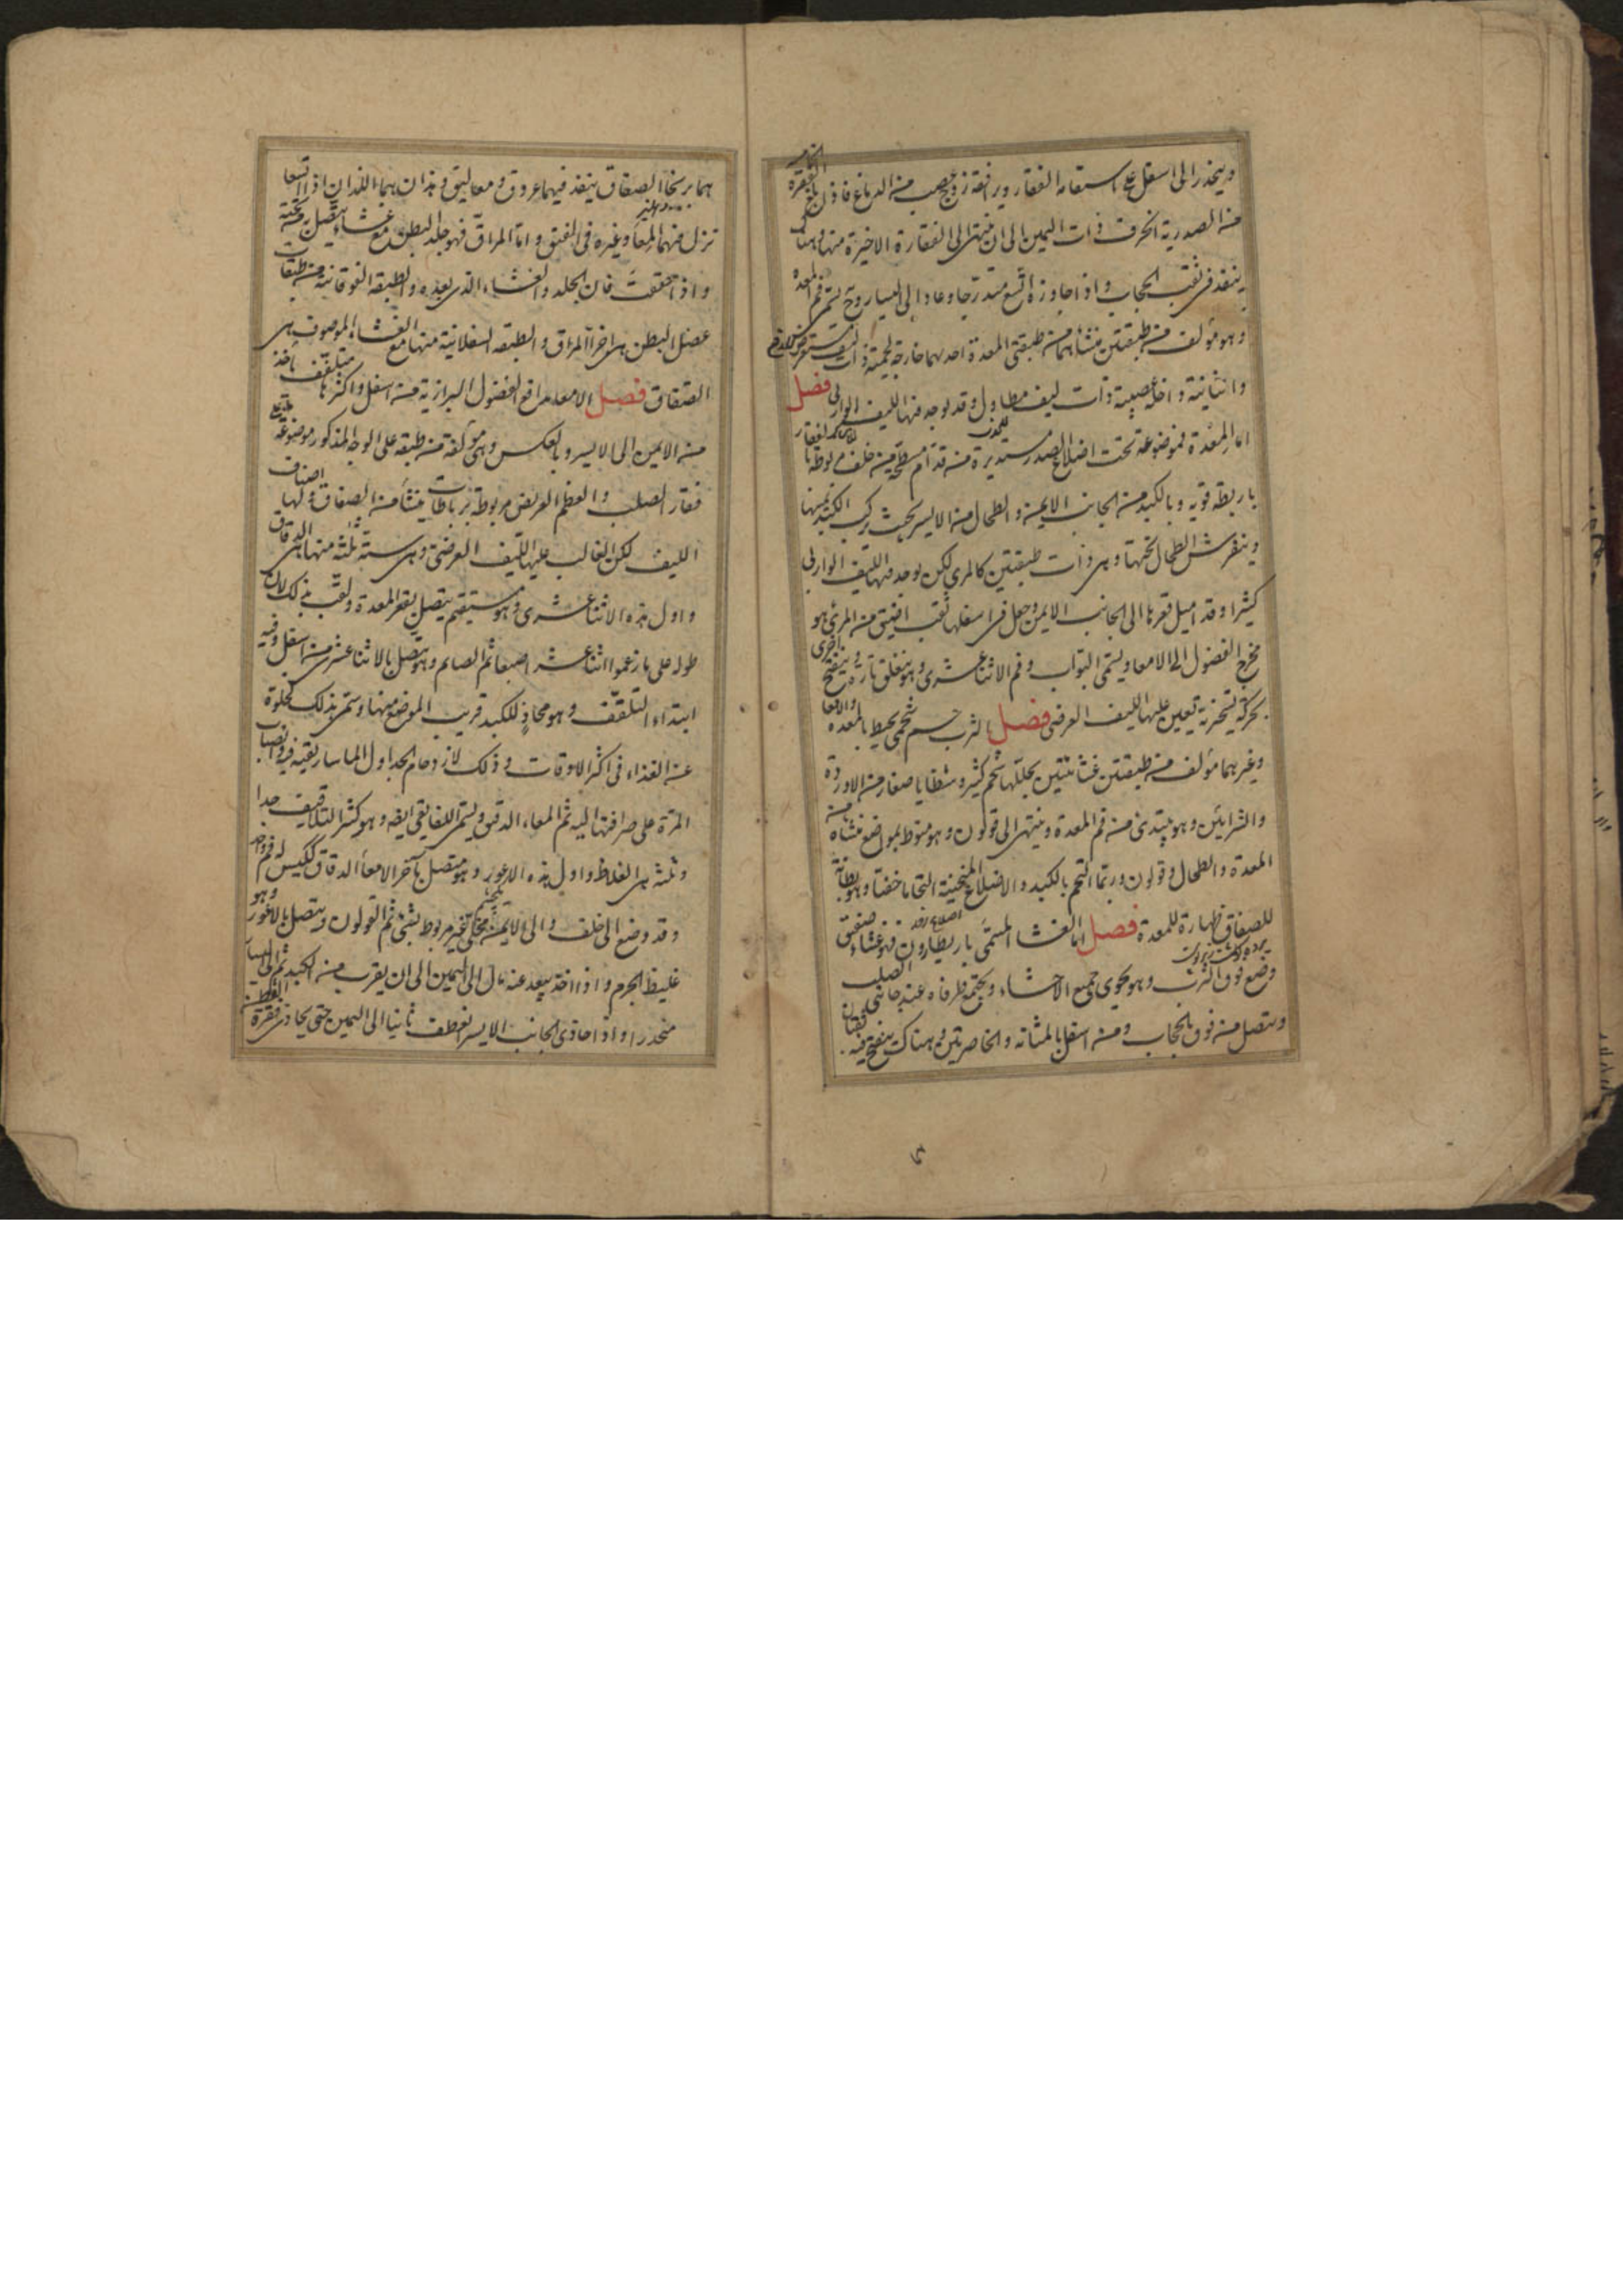 وينحدر الى اسفل على استقامة الفقار ويرافقه زوج عصب من الدماغ فاذن بلغ الفقرة الخامسة
من الصدرية انحرف ذات اليمين الى ان ينتهى الى الفقارة الاخيرة منها وهناك
ينفذ فى ثقب الحجاب و اذا جاوزه اتسع متدرجا وعاد الى اليسار وح يسمى فم المعدة
وهو مؤلف من طبقتين منشاهما من طبقتى المعدة احديهما خارجة لحمية ذات ليف مستعرض للدفع
والثانية داخلة عصبية ذات ليف مطاول وقد يوجد فيها الليف الوارب فصل
اما المعدة فموضوعة تحت اضلاع الصدر مستديرة من قدام مسطحة من خلف مربوطة بالفقار
باربطة قوية وبالكبد من الجانب الايمن والطحال من الايسر بحيث يركب الكبد يمينها
وينفرش الطحال تحتها وهى ذات طبقتين كالمرى لكن يوجد فيها الليف الوارب
كثيرا وقد اميل قعرها الى الجانب الايمن وجعل فى اسفلها ثقب اضيق من المرئ هو
مخرج الفضول الى الامعاء ويسمى البواب وفم الاثنا عشرى وهو ينغلق تارة وينفتح اخرى
بحركة تسخيرية تعين عليها الليف العرضى فصل الثرب جسم شحمى يحيط بالمعدة والامعا
وغيرهما مؤلف من طبقتين غشائيتين يجللها شحم كثير وشظايا صغار من الاوردة
والشرايين وهو يبتدئ من فم المعدة وينتهى الى قولون وهو منوط بمواضع منشاه من
المعدة والطحال وقولون وربما التحم بالكبد والاضلاع المنحنية التحاما خفيا وهو بطانة
للصفاق ظهارة للمعدة فصل اما الغشا المسمى باريطارون فهو غشاء صفيق
وضع فوق الثرب وهو يحوى جميع الاحشاء ويجتمع طرفاه عند جانبى الصلب
ويتصل من فوق بالحجاب ومن اسفل بالمثانة والخاصرتين وهناك ينفتح فيه ثقبتان
هما بربخا الصفاق ينفذ فيهما عروق ومعاليق وهذان هما اللذان اذا اتسعا
نزل فيهما المعا وغيره فى الفتق واما المراق فهو جلد البطن مع غشاء يتصل بتحته
واذا حققت فان الجلد والغشاء الذى بعده والطبقة الفوقانية من طبقات
عضل البطن هى اجزا المراق والطبقة السفلانية منها مع الغشاء الموصوف هى
الصفاق فصل الامعا مدافع الفضول البرازية من اسفل واكثرها متلفف ياخذ
من الايمن الى الايسر وبالعكس وهى مؤلفة من طبقة على الوجه المذكور موضوعة
فقار الصلب والعظم العريض مربوطة برباطات منشأ من الصفاق ولها اصناف
الليف لكن الغالب عليها الليف العرضى وهى ستة ثلثة منها هى الدقاق
واول هذه الاثنا عشرى وهو مستقيم يتصل بقعر المعدة ولقب بذلك لان
طوله على ما زعموا اثنا عشر اصبعا ثم الصايم وهو يتصل بالاثنا عشرى من اسفل وفيه
ابتداء التلفف وهو محاذ للكبد قريب الموضع منها وسمى بذلك لخلوه
عن الغذاء فى اكثر الاوقات وذلك لازدحام الجداول الماساريقية فيه وانصباب
المرة على صرافتها اليه ثم المعاء الدقيق ويسمى اللفايفى ايضه وهو كثير التلافيف جدا
وثلثة هى الغلاظ واول هذه الاعور وهو متصل بآخر الامعاء الدقاق ككيس له فم واحد
وقد وضع الى خلف والى الايمن مخلى غير مربوط بشئ ثم القولون ويتصل بالاعور وهو
غليظ الجرم واذا اخذ يبعد عنه مال الى اليمين الى ان يقرب من الكبد ثم الى اليسار
منحدرا واذا حاذى الجانب الايسر انعطف ثانيا الى اليمين حتى يحاذى فقرة القطن